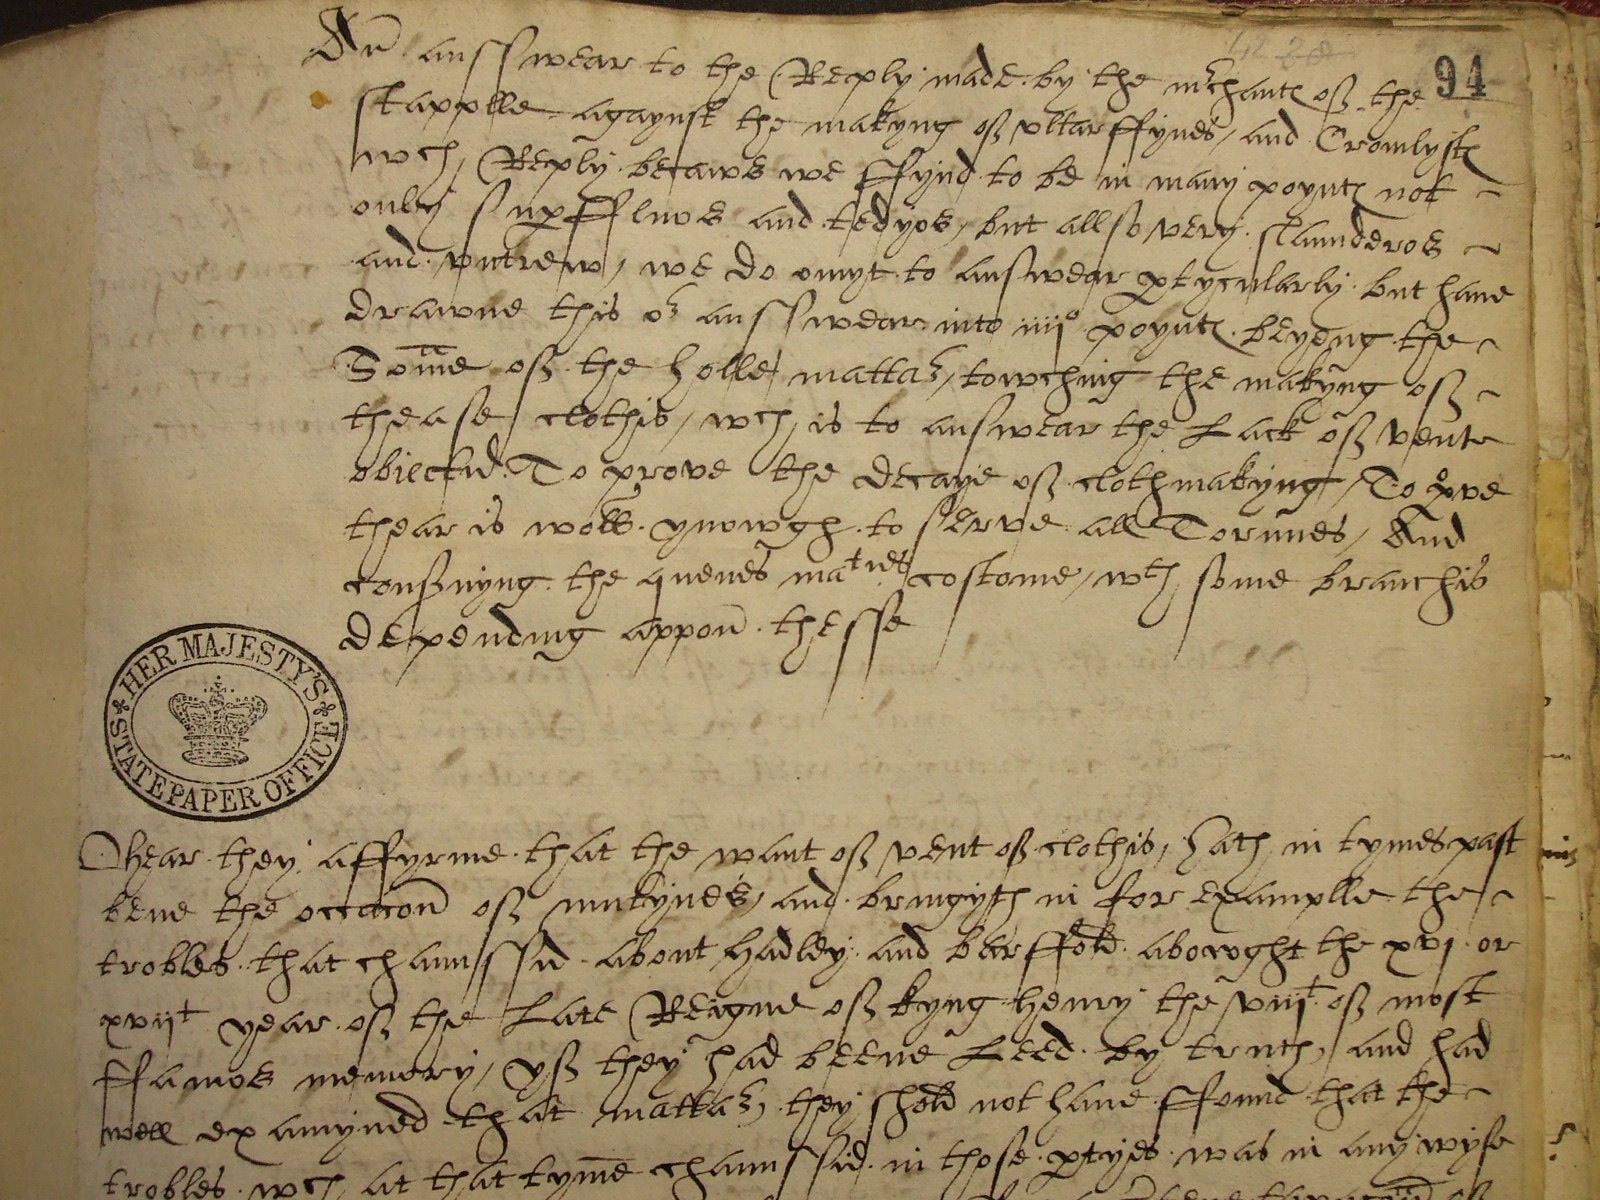 94
An ansswear to the Reply made by the mchants off the
stapplle agaynst the makyng off vltarffynes, and Cromlysts
wch, Reply becawe we ffynd to be in many poynts not
only supfflwos and tedyos, but allso very slaunderos
and vntrew, we do omyt to answear ptycularly but have
drawne this or ansswear into iiiio poynts beyeng the
Some off the holle mattar, towching the makyng off
thease clothis, wch, is to answear the Lack off vente
obiectid. To prove the decaye off clothmakyng, To prve
thear is woll ynowgh to serve all Tornnes, And
consrnyng the quenes maties costome, wth some branchis
depending appon thesse
HER MAJESTY'S
STATE PAPER OFFICE
Whear they affyrme that the want off vent off clothis, hath in tymes past
bene the occacon off mutynes, and bringyth in for examplle the
trobles that chaunssid about Hadley and barffold abowght the xvj or
xvijt year off the Late Reigne off kyng henry the viijt off most
ffamos memory, yff they had beene Leed by truth, and had
well examyned that mattar, they shold not have ffound that the
trobles wch at that tyme chaunssid in those ptyes was in any wyse